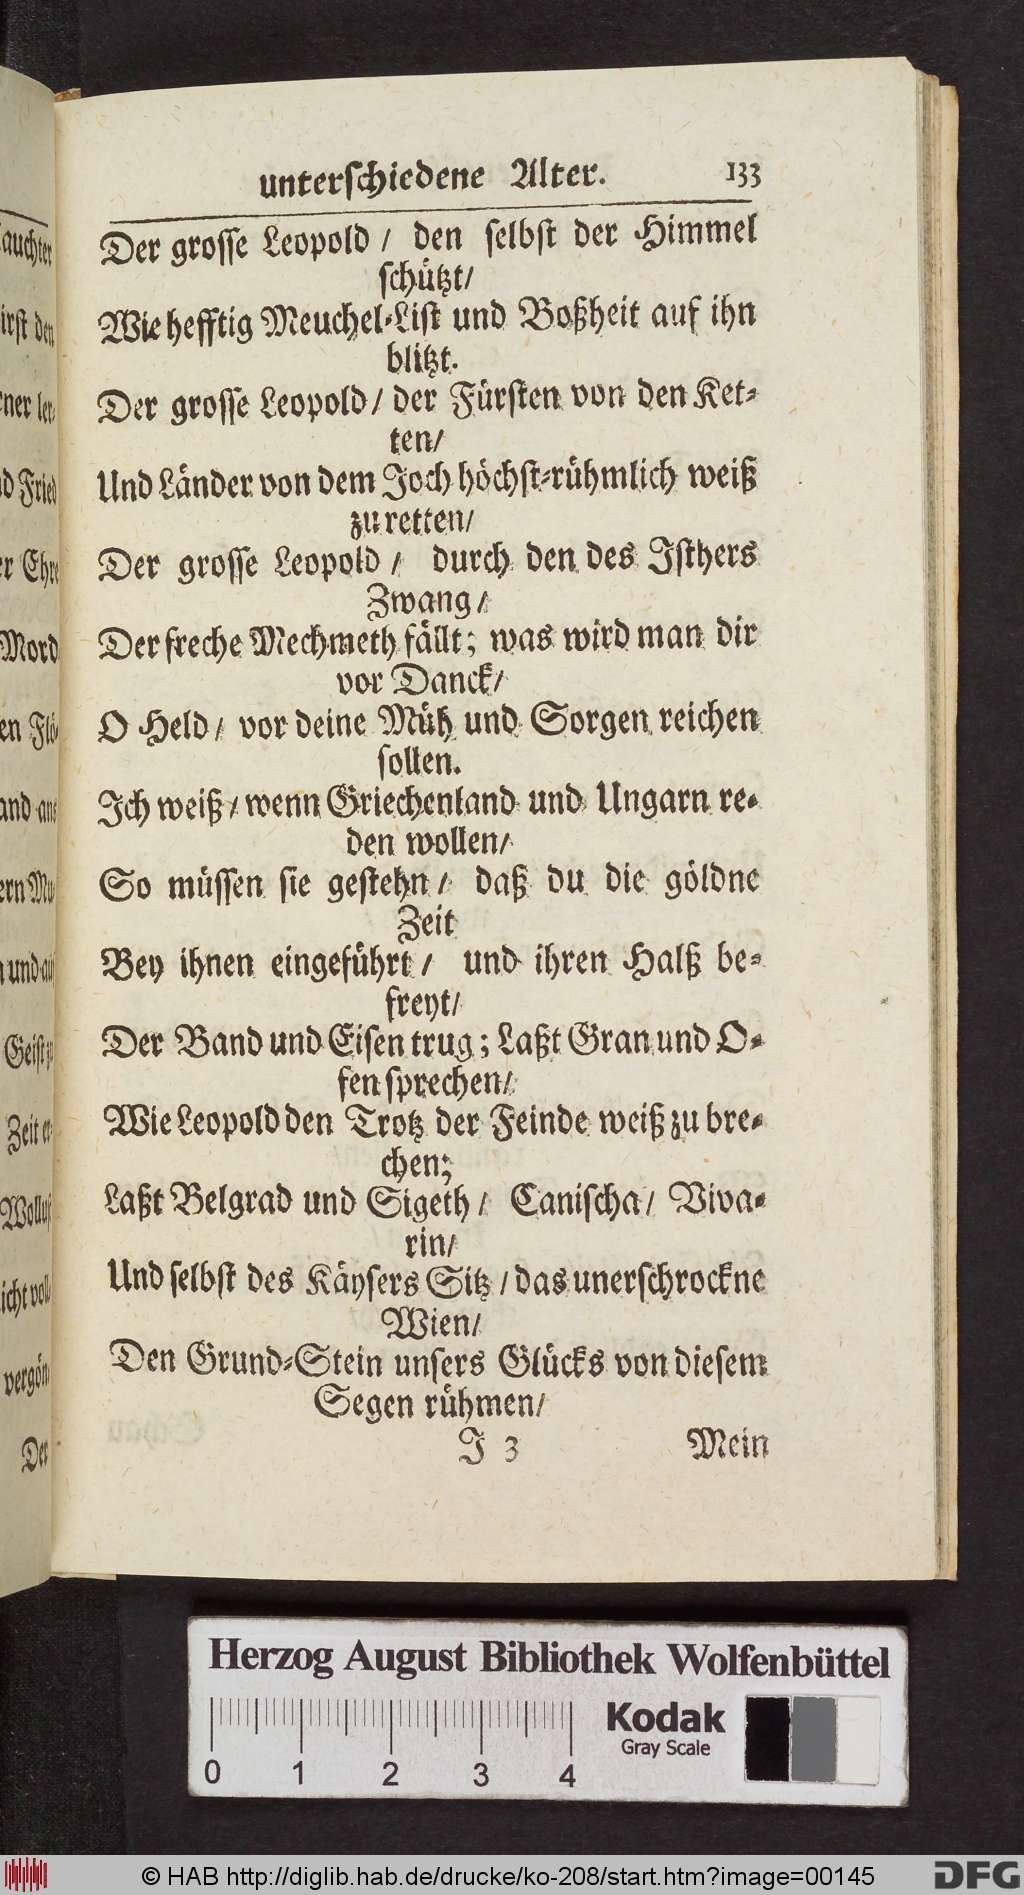 unterschiedene Alter. 133
Der grosse Leopold / den selbst der Himmel
schützt/
Wie hefftig Meuchel-List und Boßheit auf ihn
blitzt.
Der grosse Leopold / der Fürsten von den Ket-
ten/
Und Länder von dem Joch höchst-rühmlich weiß
zu retten/
Der grosse Leopold / durch den des Isthers
Zwang /
Der freche Mechmeth fällt; was wird man dir
vor Danck/
O Held / vor deine Müh und Sorgen reichen
sollen.
Ich weiß / wenn Griechenland und Ungarn re-
den wollen/
So müssen sie gestehn / daß du die göldne
Zeit
Bey ihnen eingeführt / und ihren Halß be-
freyt/
Der Band und Eisen trug; Laßt Gran und O-
fen sprechen/
Wie Leopold den Trotz der Feinde weiß zu bre-
chen;
Laßt Belgrad und Sigeth / Canischa / Viva-
rin/
Und selbst des Käysers Sitz / das unerschrockne
Wien/
Den Grund-Stein unsers Glücks von diesem
Segen rühmen/
J 3 Mein
auchter
irst den
rner ler-
nd Fried
er Ehre
Mord
en Flö-
and aus
ern Mu-
n und auf
Geist
Zeit er-
Wollust
icht voll-
vergön-
Der
Herzog August Bibliothek Wolfenbüttel
Kodak
Gray Scale
0 1 2 3 4
© HAB http://diglib.hab.de/drucke/ko-208/start.htm?image=00145
DFG